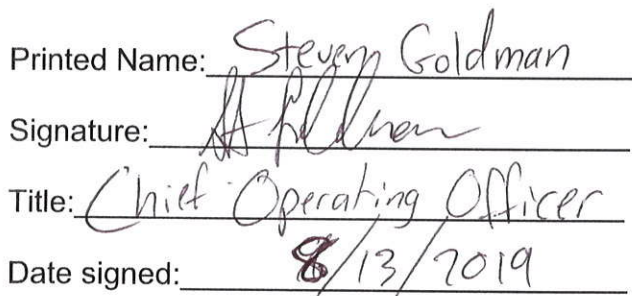 Printed Name: Steven Goldman
Signature: St Goldman
Title: Chief Operating Officer
Date signed: 8/13/2019